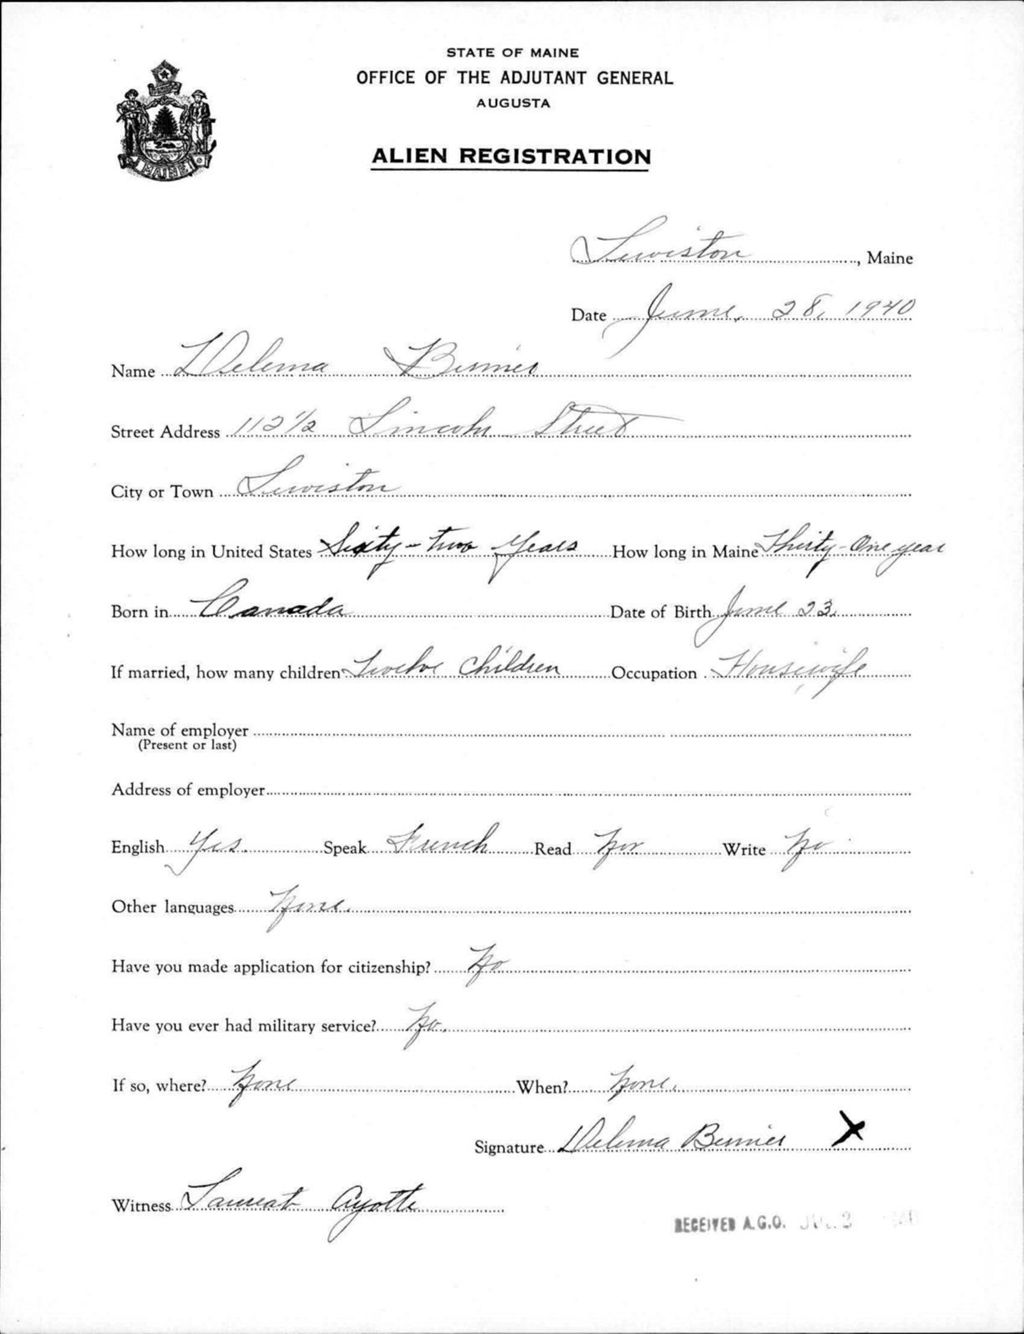 STATE OF MAINE
OFFICE OF THE ADJUTANT GENERAL
AUGUSTA
ALIEN REGISTRATION
MAINE
Lewiston, Maine
Date June, 28, 1940
Name Delema Bernier
Street Address 112 1/2 Lincoln Street
City or Town Lewiston
How long in United States Sixty-two Years How long in Maine Thirty-One year
Born in Canada Date of Birth June 23.
If married, how many children Twelve Children Occupation Housewife
Name of employer
(Present or last)
Address of employer
English Yes. Speak French Read No. Write No
Other languages None.
Have you made application for citizenship? No
Have you ever had military service? No.
If so, where? None When? None.
Signature Delema Bernier X
Witness Laureat Ayotte
RECEIVED A.G.O. 2